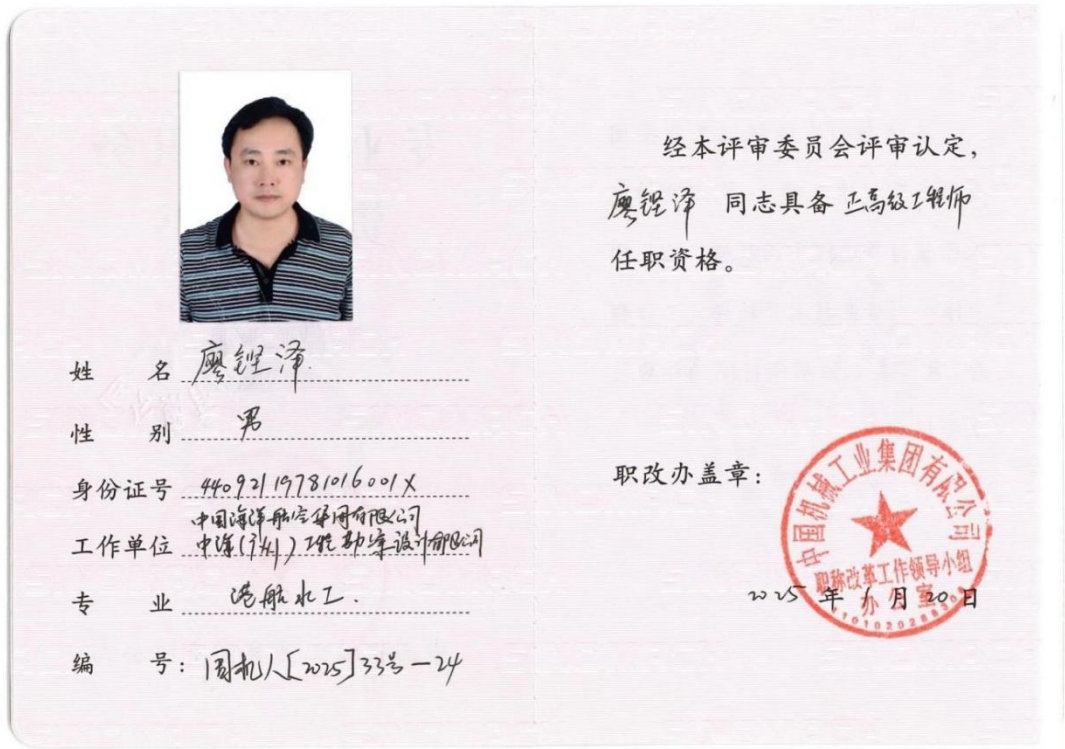 姓名 廖铿泽.
性别 男
身份证号 44092119781016001X
中国海洋航空集团有限公司
工作单位 中海(广州)工程勘察设计有限公司
专业 港航水工.
编号: 国机人[2025]33号-24
经本评审委员会评审认定,
廖铿泽 同志具备 正高级工程师
任职资格。
职改办盖章:
中国机械工业集团有限公司
职称改革工作领导小组
办公室
2025 年 1 月 20 日